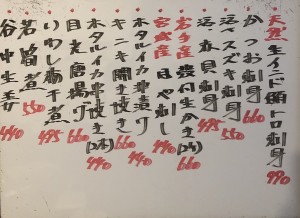 天然生インド頭トロ刺身 990
かつお刺身 660
活〆スズキ刺身 660
活〆 貝刺身 495
岩手産殻付生かき(2ケ) 660
宮城産ほや刺し 440
ホタルイカ沖漬け 440
キンキ開き焼き
ホタルイカ串焼き(2本) 440
目光唐揚げ 660
いわし梅干煮 495
若筍煮 550
谷中生姜 440